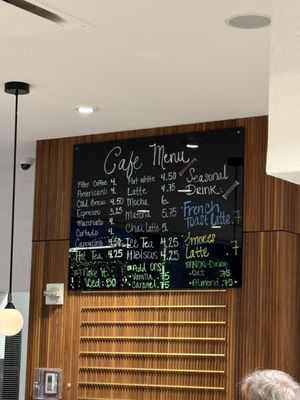 Cafe Menu
Filter Coffee 4.
Americano 4.
Cold Brew 4.
Espresso 3.25
Macchiato 4.
Cortado 4.
Cappucino 4.50
Hot Tea 4.25
Make it
Iced .50
Flat White 4.50
Latte 4.75
Mocha 6.
Matcha 5.75
Chai Latte 5.
Ice Tea 4.25
Hibiscus 4.25
Add Ons
Vanilla .75
Caramel .75
Seasonal
Drink
French
Toast Latte 7
Smores
Latte 7
Non-Dairy
Oat .75
Almond .75